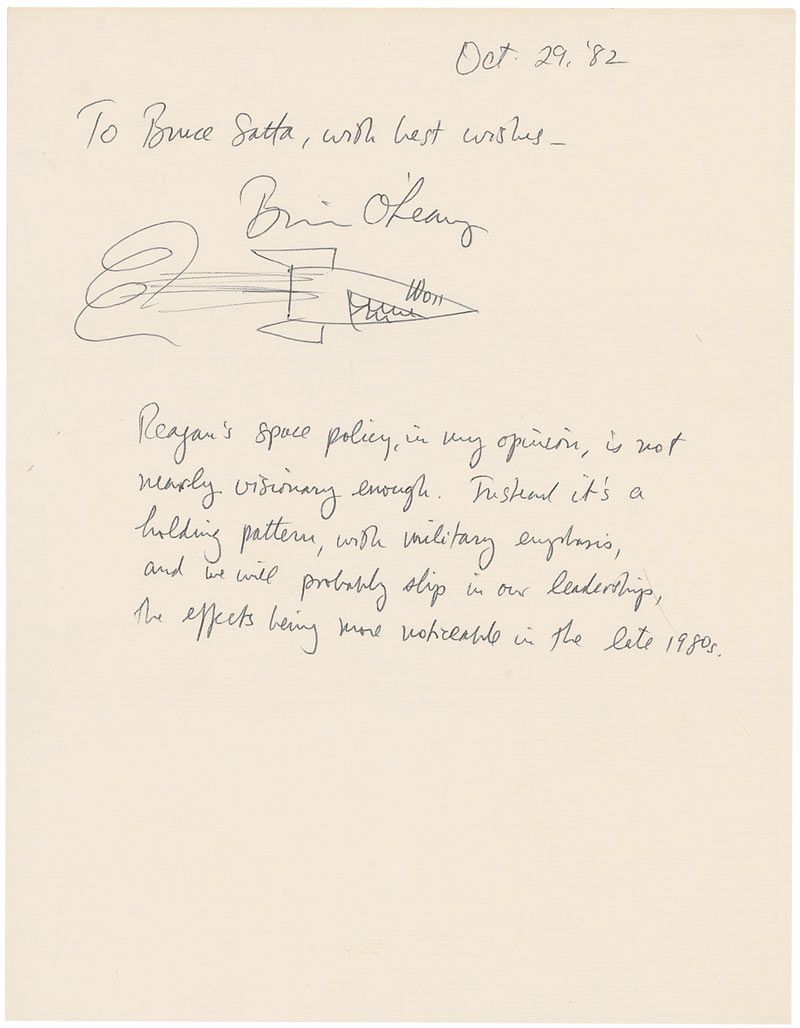 Oct. 29, '82
To Bruce Satta, with best wishes –
Brian O'Leary
Reagan's space policy, in my opinion, is not
nearly visionary enough. Instead it's a
holding pattern, with military emphasis,
and we will probably slip in our leadership,
the effects being more noticeable in the late 1980s.